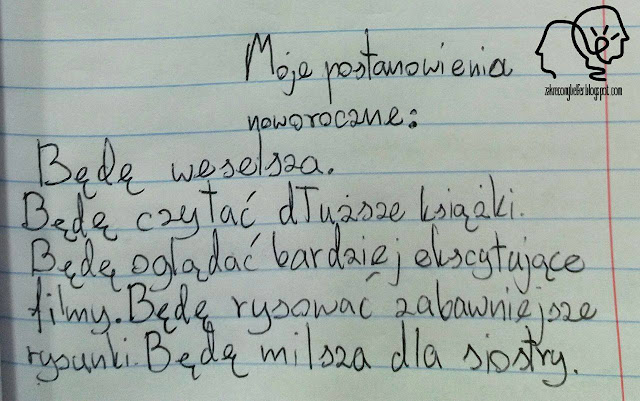 Moje postanowienia
zakreconybelfer.blogspot.com
noworoczne:
Będę weselsza.
Będę czytać dłuższe książki.
Będę oglądać bardziej ekscytujące
filmy. Będę rysować zabawniejsze
rysunki. Będę milsza dla siostry.